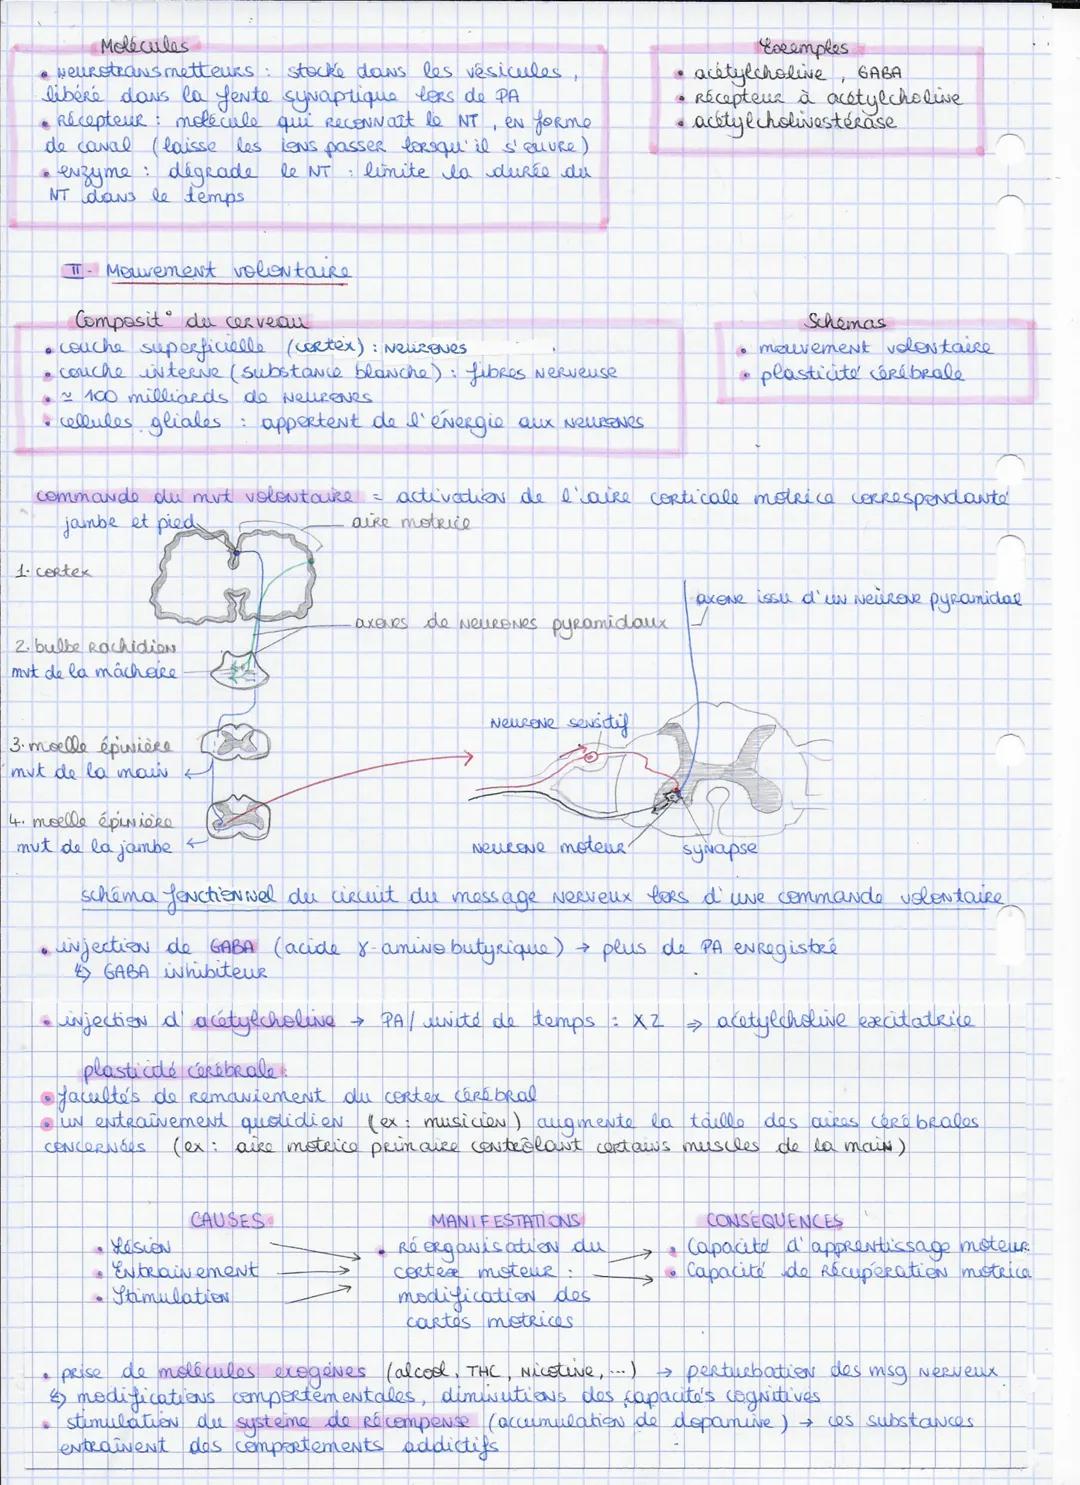 Molécules
• Neurotransmetteurs : stocké dans les vésicules,
libéré dans la fente synaptique lors de PA
• Récepteur : molécule qui reconnaît le NT, en forme
de canal (laisse les ions passer lorsqu'il s'ouvre)
• enzyme : dégrade le NT : limite la durée du
NT dans le temps
Exemples
• acétylcholine, GABA
• Récepteur à acétylcholine
• acétylcholinestérase
II - Mouvement volontaire
Composit° du cerveau
• couche superficielle (cortex) : neurones
• couche interne (substance blanche) : fibres nerveuse
• ≃ 100 milliards de neurones
• cellules gliales : apportent de l'énergie aux neurones
Schémas
• mouvement volontaire
• plasticité cérébrale
commande du mvt volontaire = activation de l'aire corticale motrice correspondante
jambe et pied
aire motrice
1. cortex
axone issu d'un neurone pyramidal
axones de neurones pyramidaux
2. bulbe rachidien
mvt de la mâchoire
neurone sensitif
3. moelle épinière
mvt de la main
4. moelle épinière
mvt de la jambe
neurone moteur
synapse
schéma fonctionnel du circuit du message nerveux lors d'une commande volontaire
• injection de GABA (acide γ-aminobutyrique) → plus de PA enregistré
↳ GABA inhibiteur
• injection d'acétylcholine → PA/unité de temps : x2 ⇒ acétylcholine excitatrice
plasticité cérébrale :
• facultés de remaniement du cortex cérébral
• un entraînement quotidien (ex : musicien) augmente la taille des aires cérébrales
concernées (ex : aire motrice primaire contrôlant certains muscles de la main)
CAUSES
• Lésion
• Entrainement
• Stimulation
MANIFESTATIONS
• Réorganisation du
cortex moteur :
modification des
cartes motrices
CONSÉQUENCES
• Capacité d'apprentissage moteur
• Capacité de récupération motrice
• prise de molécules exogènes (alcool, THC, nicotine, ...) → perturbation des msg nerveux
↳ modifications comportementales, diminutions des capacités cognitives
• stimulation du système de récompense (accumulation de dopamine) → ces substances
entraînent des comportements addictifs